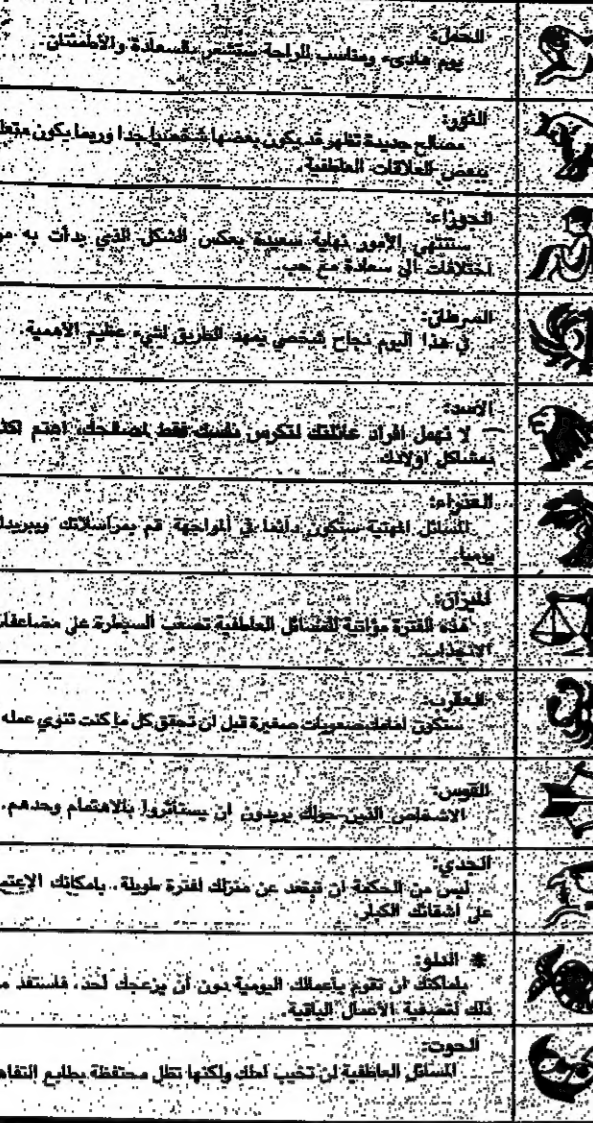 الحمل:
يوم هادىء ومناسب للراحة ستشعر بالسعادة والاطمئنان.
الثور:
مصالح جديدة تظهر قد يكون بعضها شخصيا جدا وربما يكون
ببعض العلاقات العاطفية.
الجوزاء:
ستنتهي الأمور نهاية سعيدة بعكس الشكل الذي بدأت به
اختلافات الى سعادة مع حب.
السرطان:
في هذا اليوم نجاح شخصي يمهد الطريق لشيء عظيم الأهمية
الأسد:
لا تهمل افراد عائلتك لتكرس نفسك فقط لمصالحك، اهتم
بمشاكل اولادك
العذراء:
المسائل المهنية ستكون دائما في المواجهة قم بمراسلاتك
يوميا.
الميزان:
هذه الفترة مؤاتية للمسائل العاطفية تصعب السيطرة على
الانجذاب.
العقرب:
ستكون امامك صعوبات صغيرة قبل ان تحقق كل ما كنت تنوي عمله
القوس:
الاشخاص الذين حولك يريدون ان يستأثروا بالاهتمام وحدهم.
الجدي:
ليس من الحكمة ان تبتعد عن منزلك لفترة طويلة، بامكانك
على اشقائك الكبار
* الدلو:
بامكانك ان تقوم بأعمالك اليومية دون أن يزعجك احد، فاستفد
ذلك لتصفية الأعمال الباقية.
الحوت:
المسائل العاطفية لن تخيب املك ولكنها تظل محتفظة بطابع